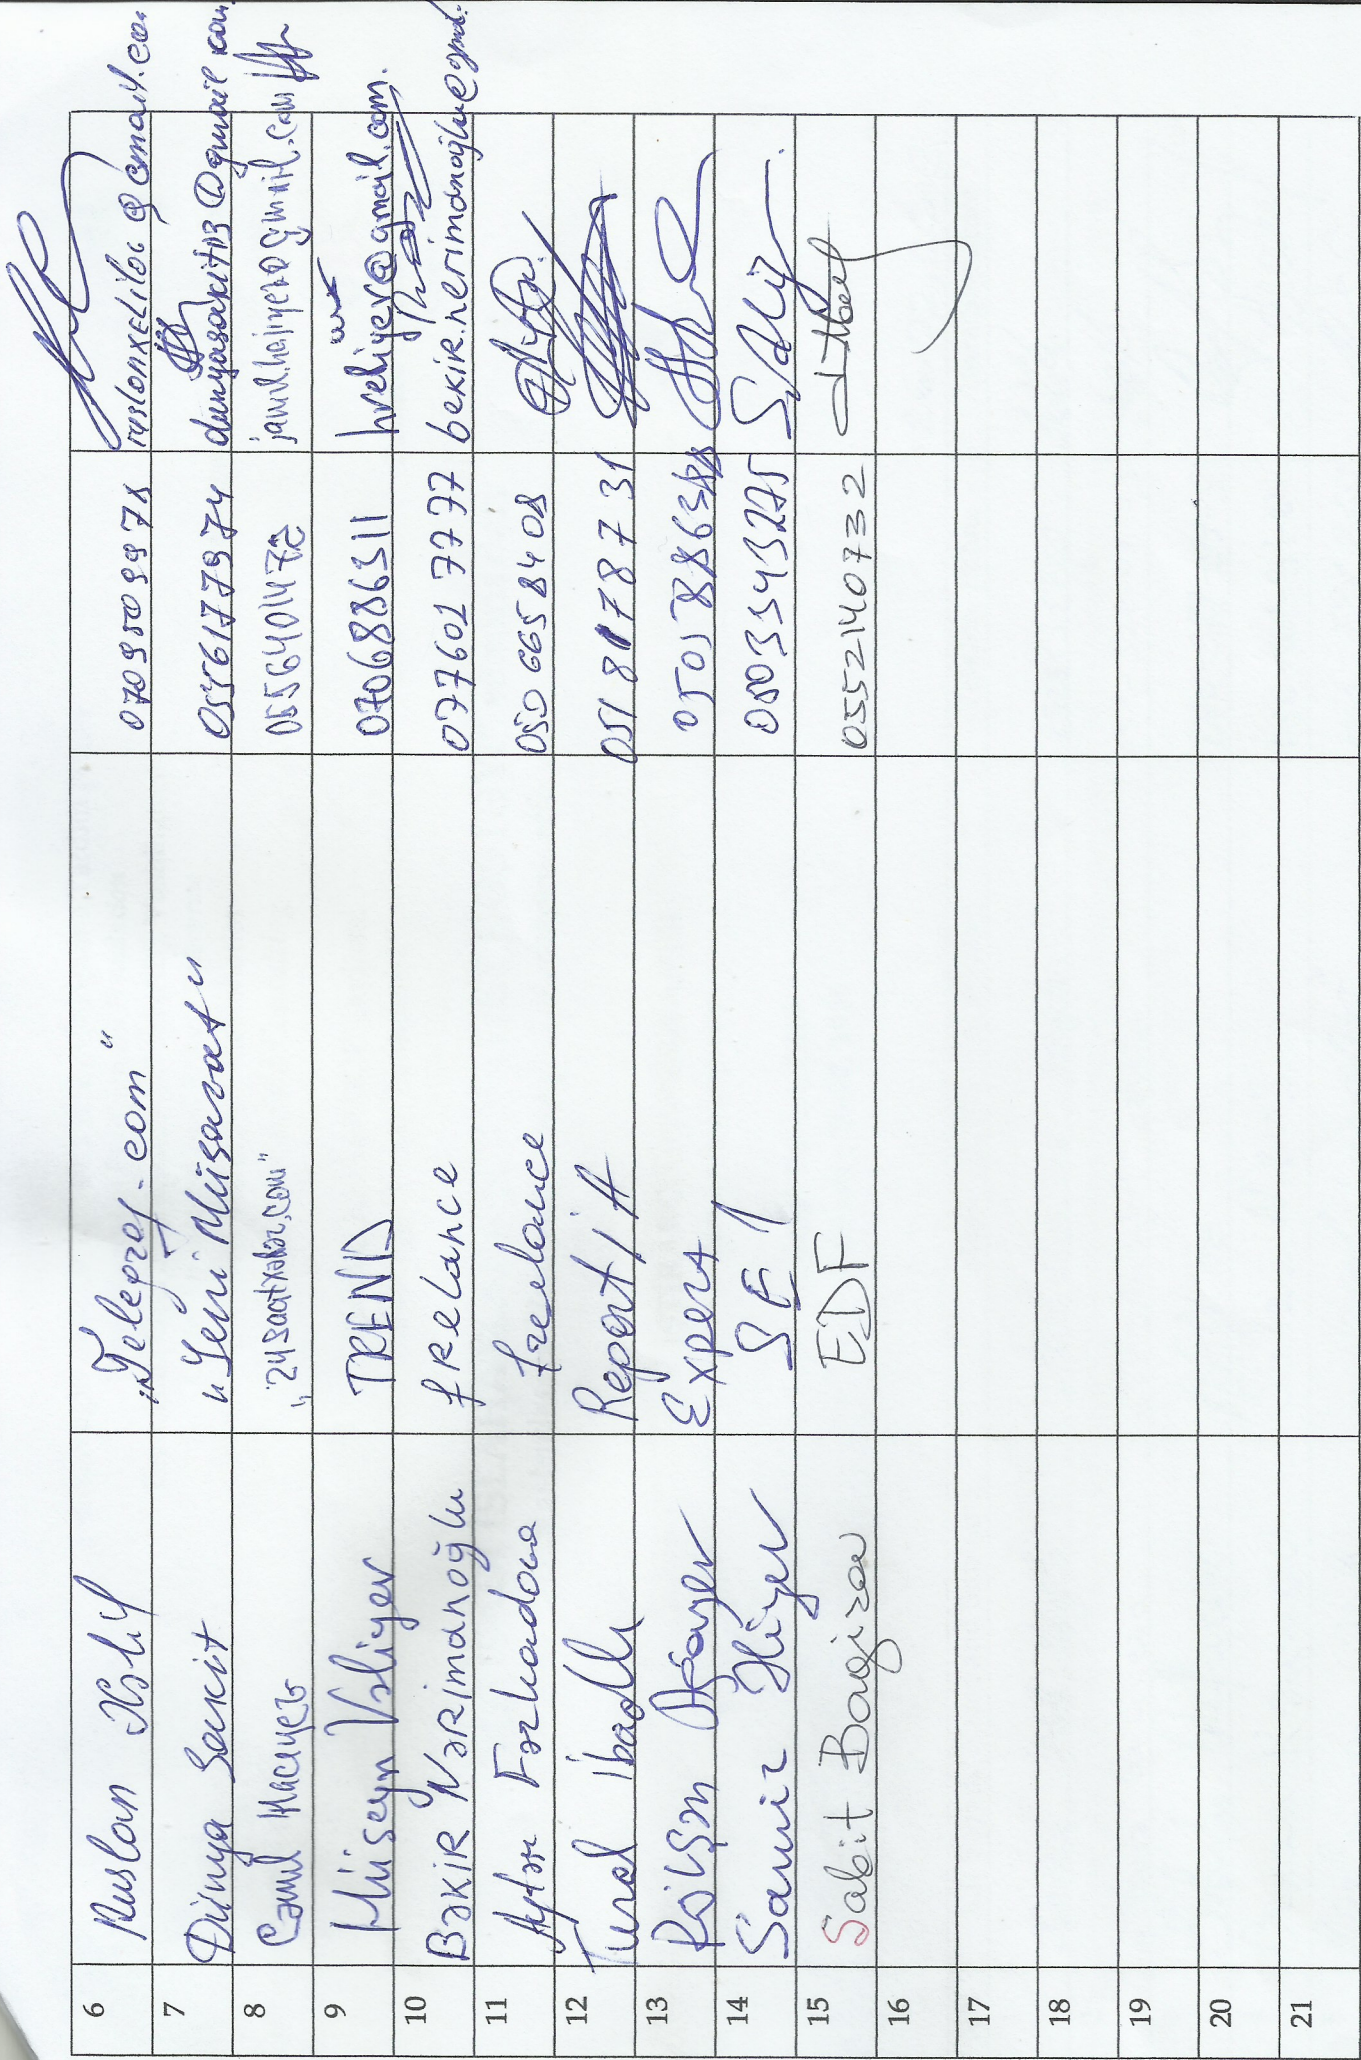 6 Ruslan Xəlil "Teleqraf.com" 070950997
ruslanxelilov@gmail.com
7 Dünya Sakit "Yeni Müsavat" 0556177974 dunyasakit13@gmail.com
8 Cəmil Hacıyev "24saatxəbər.com" jamil.hajiyev@gmail.com
9 Hüseyn Vəliyev TREND 0706886311 hveliyev@gmail.com.
10 Bəkir Nərimanoğlu frelance 077601 7777 bekir.nerimanoglu@gmail.
11 Aytən Fərhadova freelance 050 665 84 08
12 Tural İbadlı Report İA 051 8178731
13 Rövşən Ağayev Expert
14 Samir Əliyev 0503343275
15 Sabit Bagirov EDF 0552140732
16
17
18
19
20
21